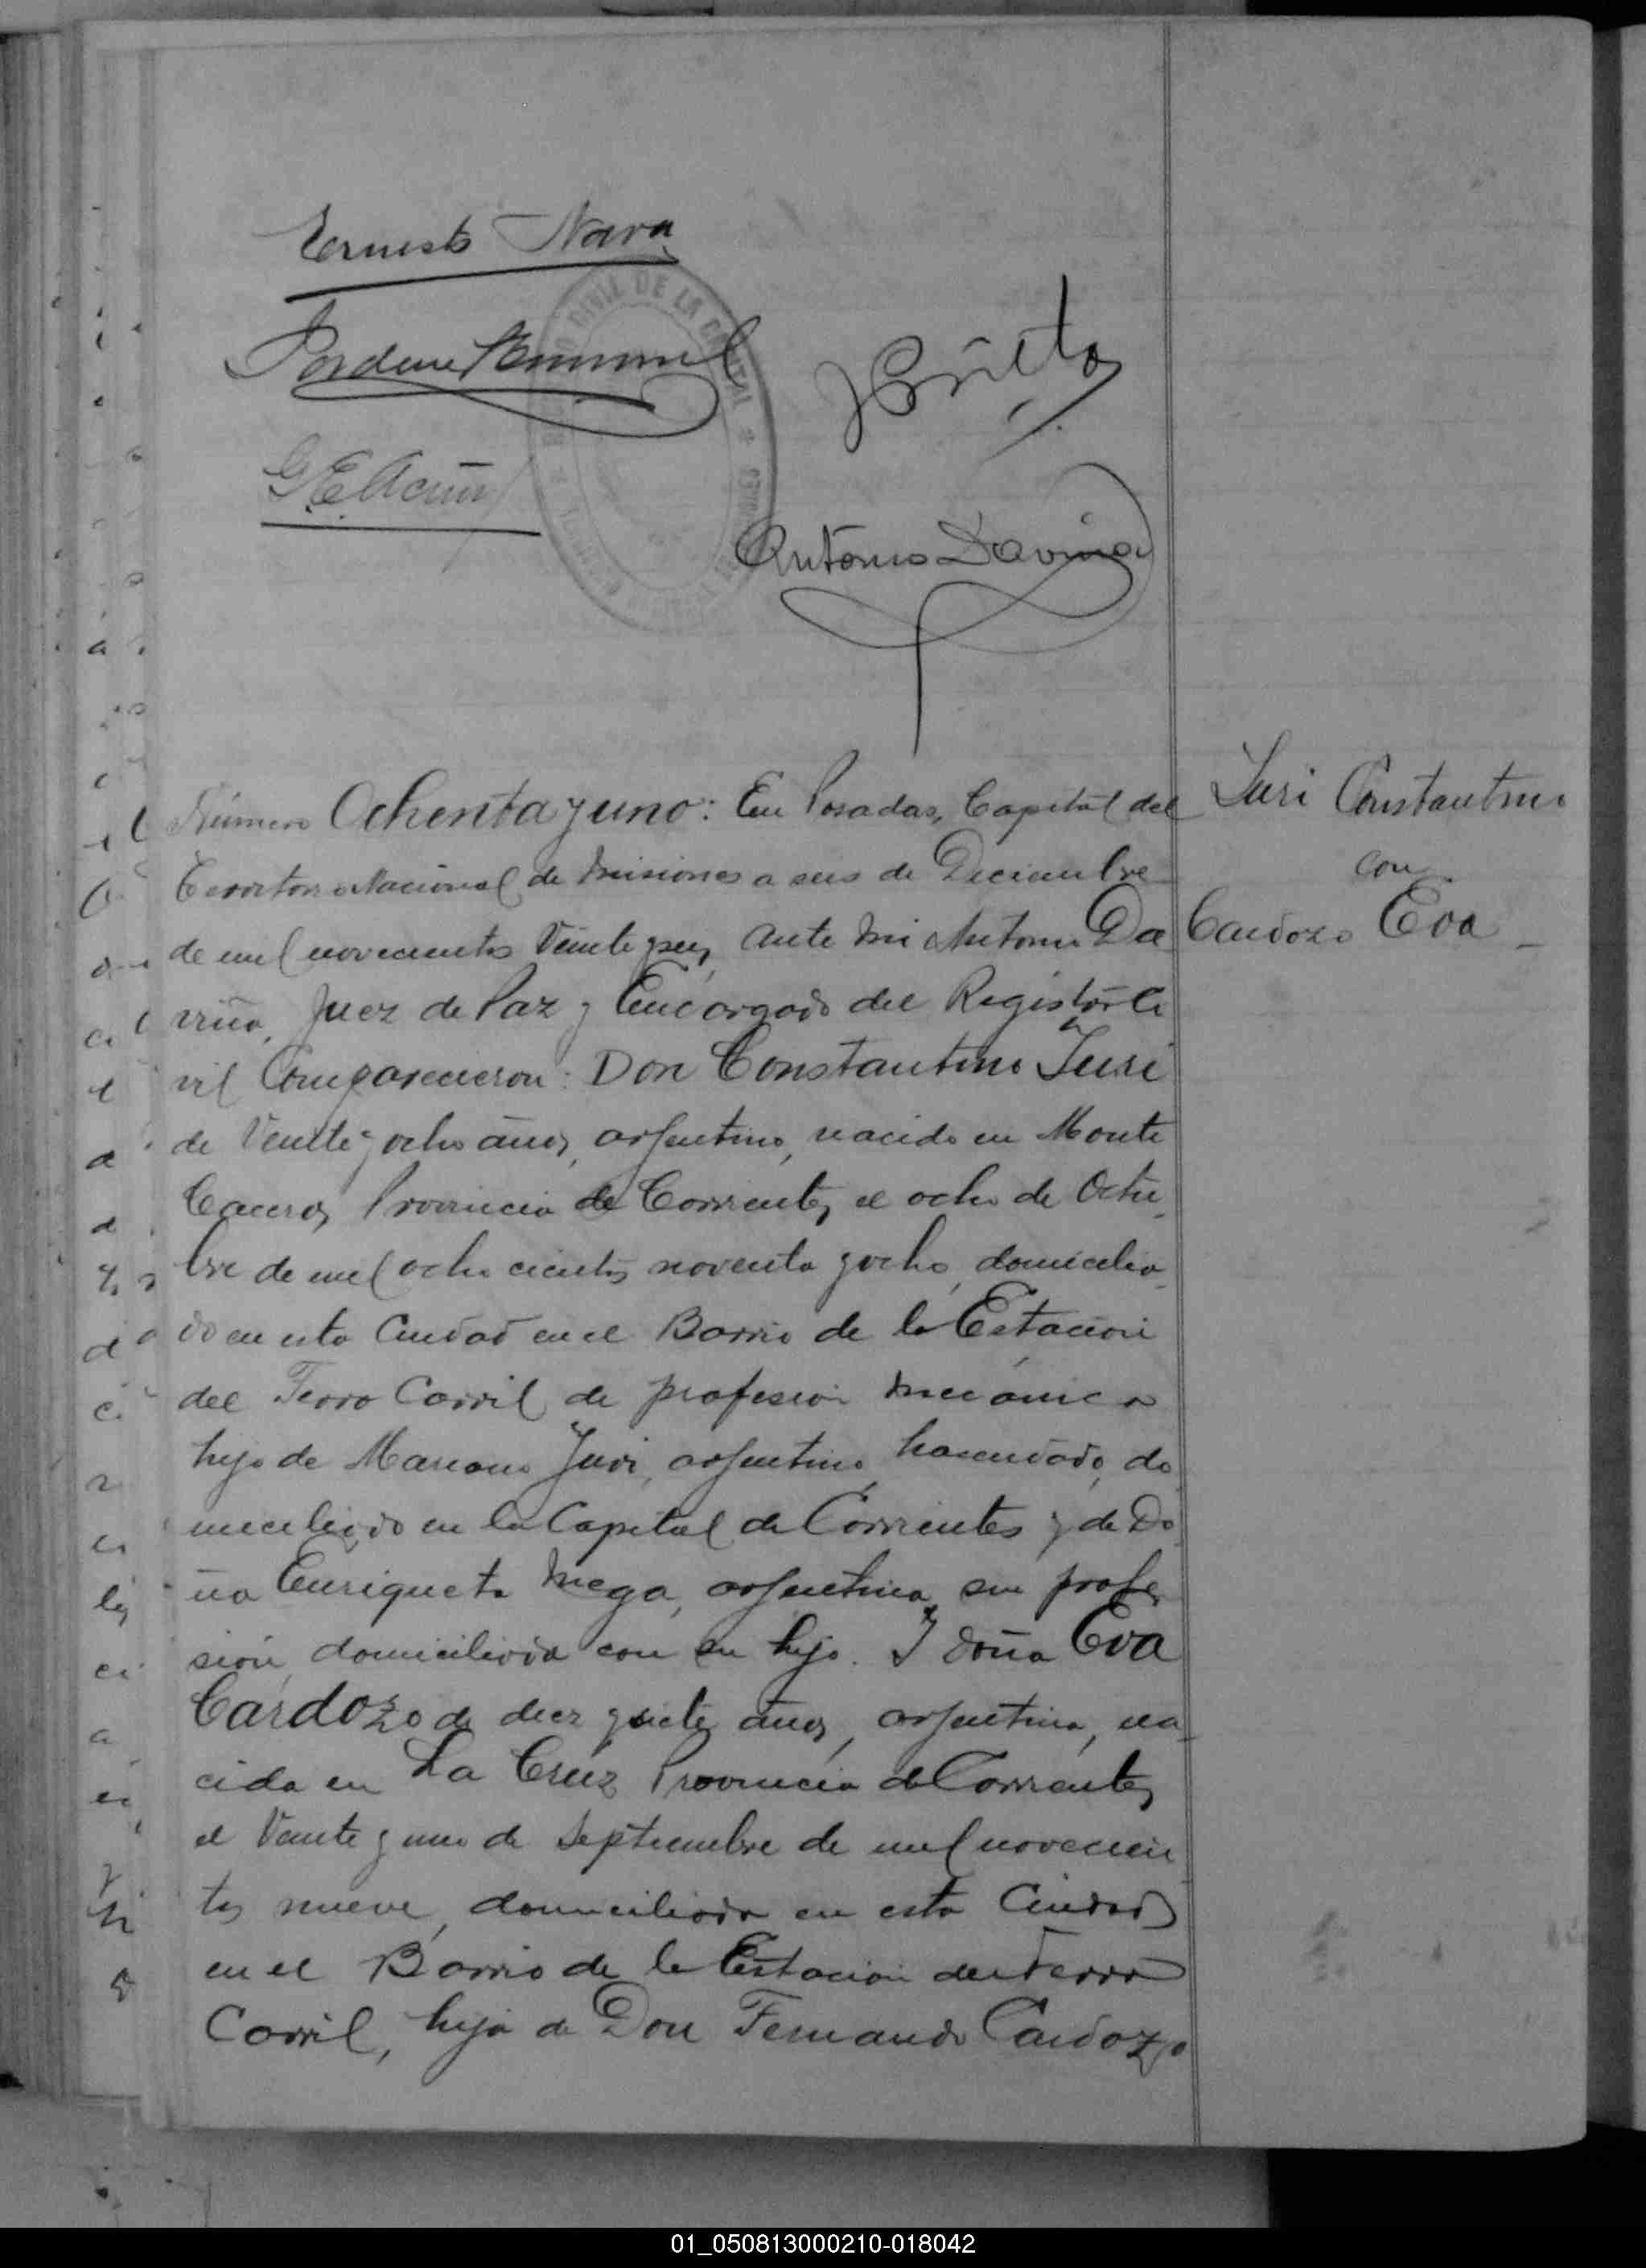 Ernesto Nava
CIVIL DE LA CAPITAL
G E Acuña
Antonio Daviña
Número Ochenta y uno: En Posadas, Capital del
Territorio Nacional de Misiones a seis de Deciembre
de mil novecientos Veinte y seis, ante mi Antonio Da
viña, Juez de Paz y Encargado del Registro Ci
vil Comparecieron: Don Constantino Juri
de Veinte y ocho años, argentino, nacido en Monte
Caceros, Provincia de Corrientes, el ocho de Octu
bre de mil ocho cientos noventa y ocho, domicilia
do en esta Ciudad en el Barrio de la Estación
del Ferro Carril de profesión mecánico
hijo de Mariano Juri, argentino, hacendado, do
miciliado en la Capital de Corrientes y de Do
ña Enriqueta Mega, argentina, sin profe
sión, domiciliada con su hijo. Y doña Eva
Cardozo de diez y siete años, argentina, na
cida en La Cruz Provincia de Corrientes,
el Veinte y uno de Septiembre de mil novecien
tos nueve, domiciliada en esta Ciudad
en el Barrio de la Estación del Ferro
Carril, hija de Don Fernando Cardozo
Juri Constantino
con
Cardozo Eva
01_050813000210-018042